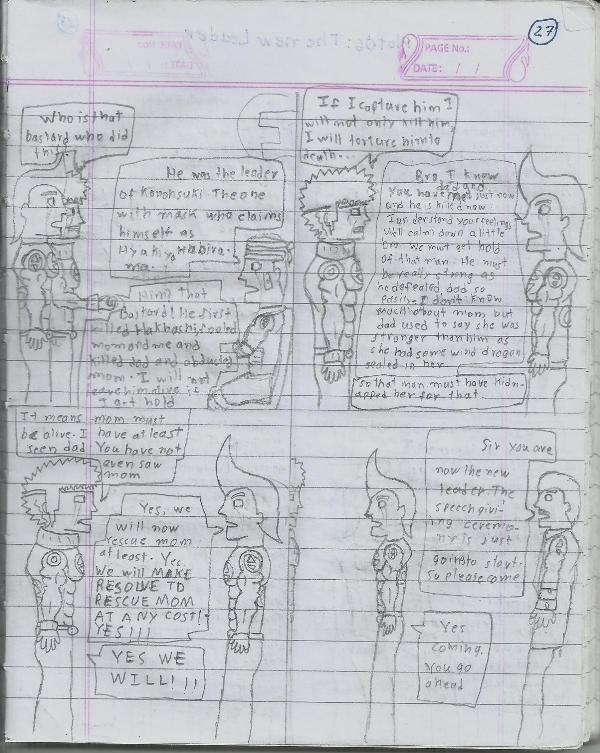 27
PAGE No.:
DATE: / /
The new Leader
Who is that
bastard who did
this.
He was the leader
of Konohsuki The one
with mask who claims
himself as
Hyakiya
Him? That
bastard! He first
killed Hakbashi, fooled
mom and me and
killed dad and abducted
mom. I will not
leave him alive if
I get hold
If I capture him I
will not only kill him,
I will torture him to
death...
Bro, I know
You have met dad and just now
and he is killed now
I understand your feelings
Well calm down a little
bro. we must get hold
of that man. He must
be really strong as
he defeated dad so
easily. I don't know
much about mom but
dad used to say she was
stronger than him as
she had some wind dragon
sealed in her
"so that man must have kidn-
apped her for that.
It means mom must
be alive. I have at least
seen dad You have not
even saw
mom
Yes, we
will now
rescue mom
at least. Yes
We will MAKE
RESOLVE TO
RESCUE MOM
AT ANY COST!
YES!!!
YES WE
WILL!!!
Sir you are
now the new
leader. The
speech givi-
ng ceremo-
ny is just
going to start.
So please come
Yes
coming.
You go
ahead